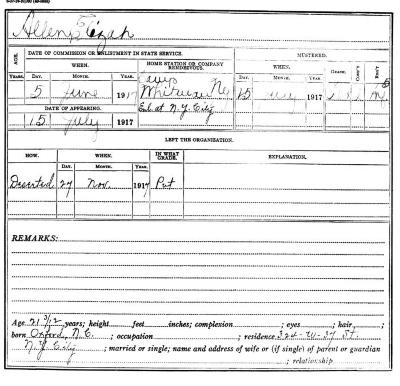 Allen, Elizah
AGE.
DATE OF COMMISSION OR ENLISTMENT IN STATE SERVICE.
HOME STATION OR COMPANY RENDEZVOUS.
MUSTERED.
WHEN.
WHEN.
GRADE.
COMP'Y
REG'T
YEARS. DAY. MONTH. YEAR.
DAY. MONTH. YEAR.
5 June 1917
Camp Whitman N.Y.
15 July 1917
DATE OF APPEARING.
Enl at N.Y. City
15 July 1917
LEFT THE ORGANIZATION.
HOW. WHEN. IN WHAT GRADE. EXPLANATION.
DAY. MONTH. YEAR.
Deserted 27 Nov. 1917 Pvt
REMARKS:
Age 21 3/12 years; height feet inches; complexion ; eyes ; hair ;
born Oxford, N.C. ; occupation ; residence 324-W-37 St
N.Y. City ; married or single; name and address of wife or (if single) of parent or guardian
; relationship